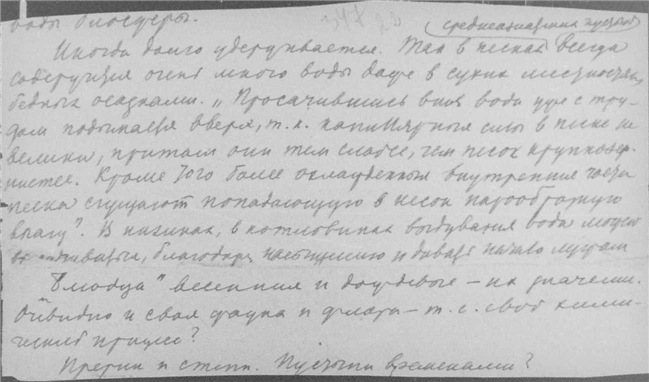 воды биосферы.
среднеазиатских пустынь
Иногда долго удерживается. Так в песках всегда
содержится очень много воды даже в сухих местностях,
бедных осадками. „Просачившись вниз вода уже с тру-
дом подымается вверх, т.к. капиллярные силы в песке не
велики, притом они тем слабее, чем песок крупнозер-
нистее. Кроме того более охлажденные внутренние части
песка сгущают попадающую в песок парообразную
влагу". В низинах, в котловинах выдувания вода может
благодаря и давать начало лужам
"Блюдца" весенния и дождевые – их значение.
Очевидно и своя фауна и флора – т.е. свой хими-
ческий процесс?
Прерии и степи. Пустыни временами?